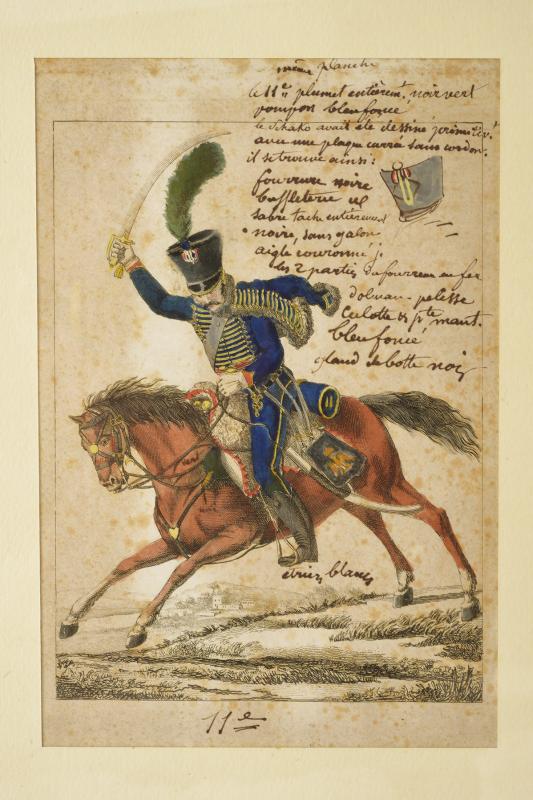 même planche
le 11e plumet entièremt. noir vert
pompon bleu foncé
le schako avait été dessiné primitivt.
avec une plaque carrée sans cordon.
il se trouve ainsi :
fourrure noire
buffleterie
sabre tache entièrement
noire, sans galon
aigle couronné j.
les 2 parties du fourreau en fer
dolman - pelisse
culotte & pte mant.
bleu foncé
gland de botte noir
étriers blancs
11
11e